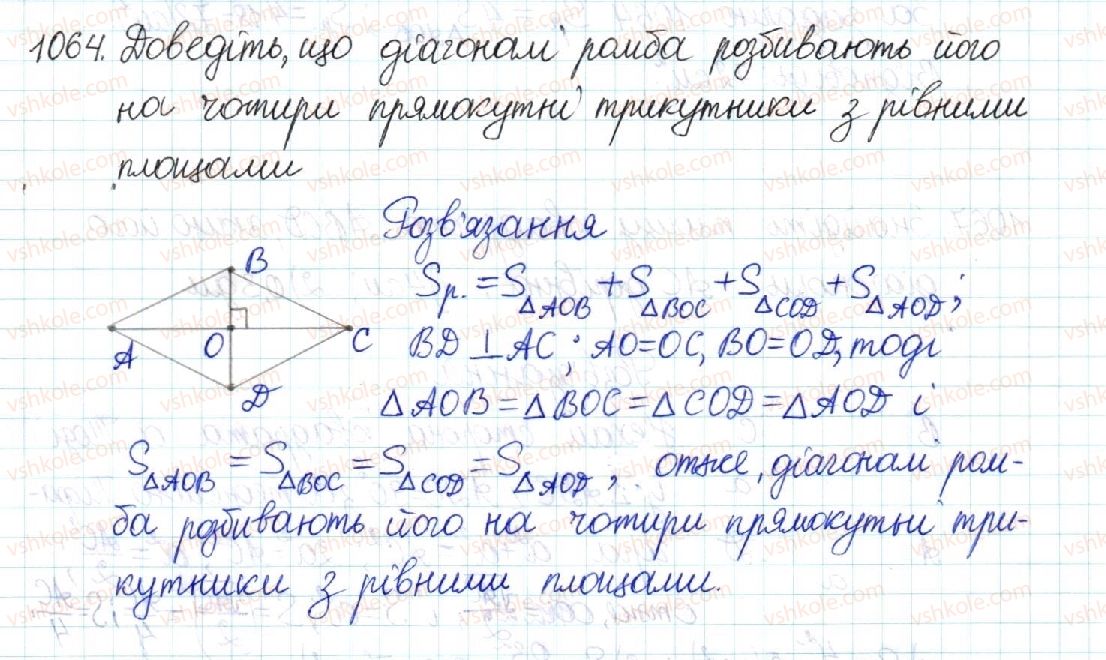 1064. Доведіть, що діагоналі ромба розбивають його
на чотири прямокутні трикутники з рівними
площами
Розв'язання
B
A
O
C
D
Sр. = S△AOB + S△BOC + S△COD + S△AOD ;
BD ⊥ AC ; AO=OC, BO=OD, тоді
△AOB = △BOC = △COD = △AOD і
S△AOB = S△BOC = S△COD = S△AOD ; отже, діагоналі ром-
ба рдбивають його на чотири прямокутні три-
кутники з рівними площами.